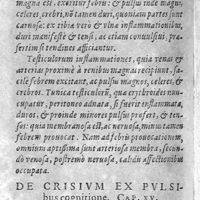 magna est. exoritur febris: & pulsu inde magni,
celeres, crebri, nō tamen duri, quoniam partes sunt
carnosæ: ex tibia verò & vlna inflammationibus,
duri manifestè & tensi, ac etiam conuulsiui, præ
sertim si tendines afficiantur.
Testiculorum inflammationes, quia venas et
arterias proximè à renibus magnas recipiunt, fa-
cilè febrem excitant, ac pulsus magnos, celeres, &
crebros. Tunica testiculorū, quæ erythroides nuncu-
patur, peritoneo adnata, si fuerit inflammata,
duros, & proinde minores pulsus profert, & ten-
sos: quia membranosa est, ac neruosa, minus tamen
febrem prouocat. Nam ad febris prouocationem,
omnium aptissima sunt arteriosa membra, secun-
dò venosa, postremò neruosa, calidis affectionibus
occupata.
DE CRISIVM EX PVLSI
bus cognitione. CAP. XV.